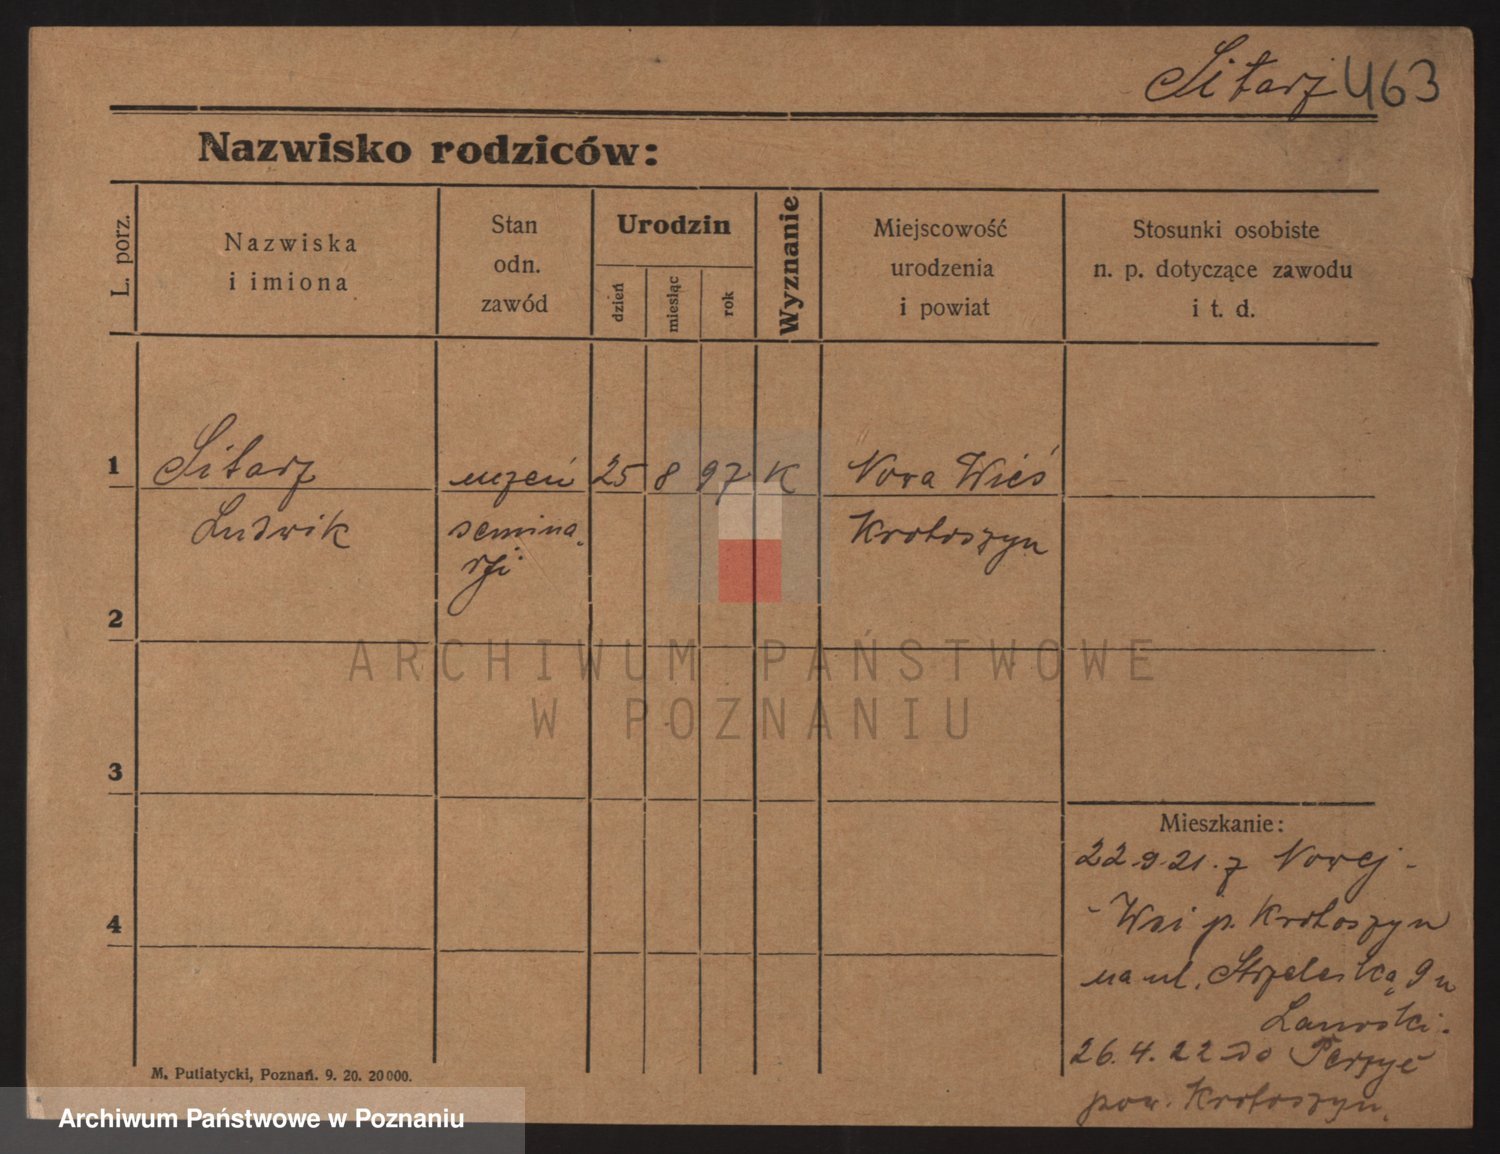 Sitarz 463
Nazwisko rodziców:
L. porz.
Nazwiska
i imiona
Stan
odn.
zawód
Urodzin
dzień
miesiąc
rok
Wyznanie
Miejscowość
urodzenia
i powiat
Stosunki osobiste
n. p. dotyczące zawodu
i t. d.
1 Sitarz uczeń 25 8 97 K Nowa Wieś
Ludwik semina- Krotoszyn
rji
2
ARCHIWUM PAŃSTWOWE
W POZNANIU
3
Mieszkanie:
22.9.21. z Nowej-
-Wsi p. Krotoszyn
na ul. Strzelecką 9 u
26.4.22 do
pow. Krotoszyn.
4
M. Putiatycki, Poznań. 9. 20. 20000.
Archiwum Państwowe w Poznaniu